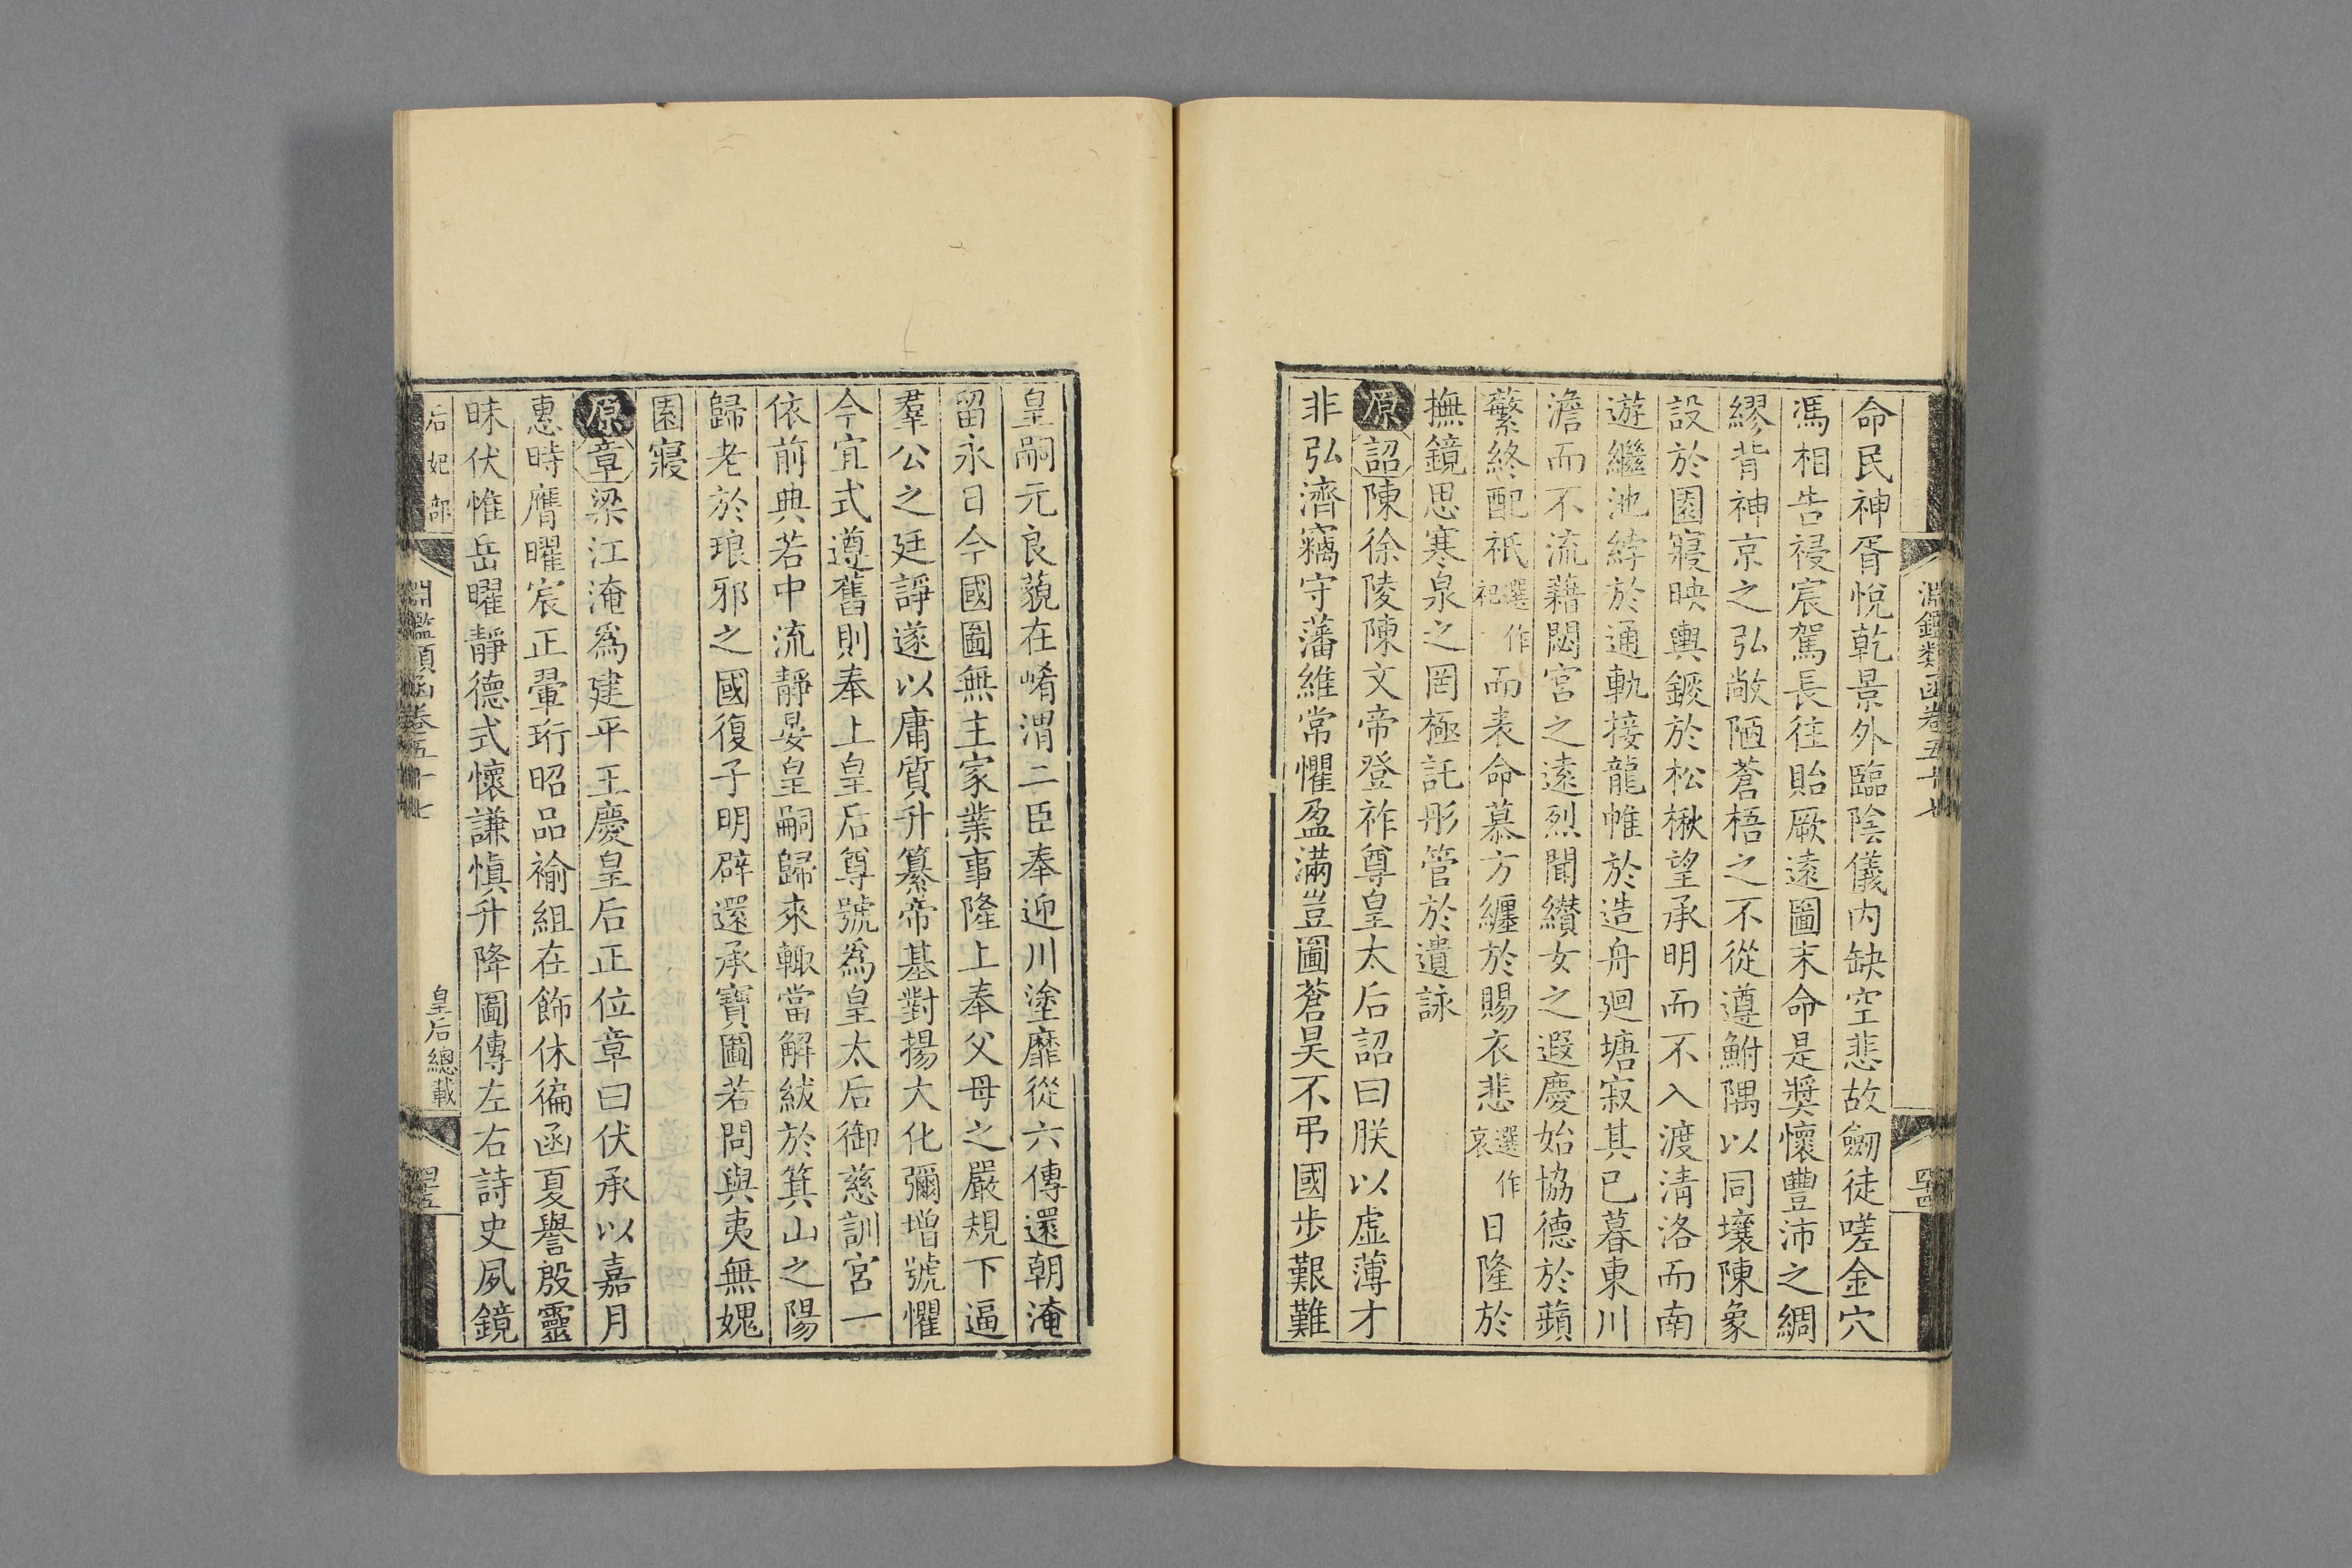 淵鑑類函卷五十七
命民神胥悅乾景外臨陰儀內缺空悲故劒徒嗟金穴
馮相告祲宸駕長往貽厥遠圖末命是奬懷豐沛之綢
繆背神京之弘敞陋蒼梧之不從遵鮒隅以同壤陳象
設於園寢映輿鍐於松楸望承明而不入渡清洛而南
遊繼池綍於通軌接龍帷於造舟迴塘寂其已暮東川
澹而不流藉閟宮之遠烈聞纘女之遐慶始協德於蘋
蘩終配祇選作祀而表命慕方纏於賜衣悲選作哀日隆於
撫鏡思寒泉之罔極託彤管於遺詠
原詔陳徐陵陳文帝登祚尊皇太后詔曰朕以虛薄才
非弘濟竊守藩維常懼盈滿豈圖蒼昊不弔國步艱難
皇嗣元良藐在崤渭二臣奉迎川塗靡從六傳還朝淹
留永日今國圖無主家業事隆上奉父母之嚴規下逼
羣公之廷諍遂以庸質升纂帝基對揚大化彌增號懼
今宜式遵舊則奉上皇后尊號爲皇太后御慈訓宮一
依前典若中流靜晏皇嗣歸來輙當解紱於箕山之陽
歸老於琅邪之國復子明辟還承寶圖若問與夷無媿
園寢
原章梁江淹爲建平王慶皇后正位章曰伏承以嘉月
惠時膺曜宸正翬珩昭品褕組在飾休徧函夏譽殷靈
昧伏惟岳曜靜德式懷謙愼升降圖傳左右詩史夙鏡
后妃部
皇后總載
淵鑑類函卷五十七